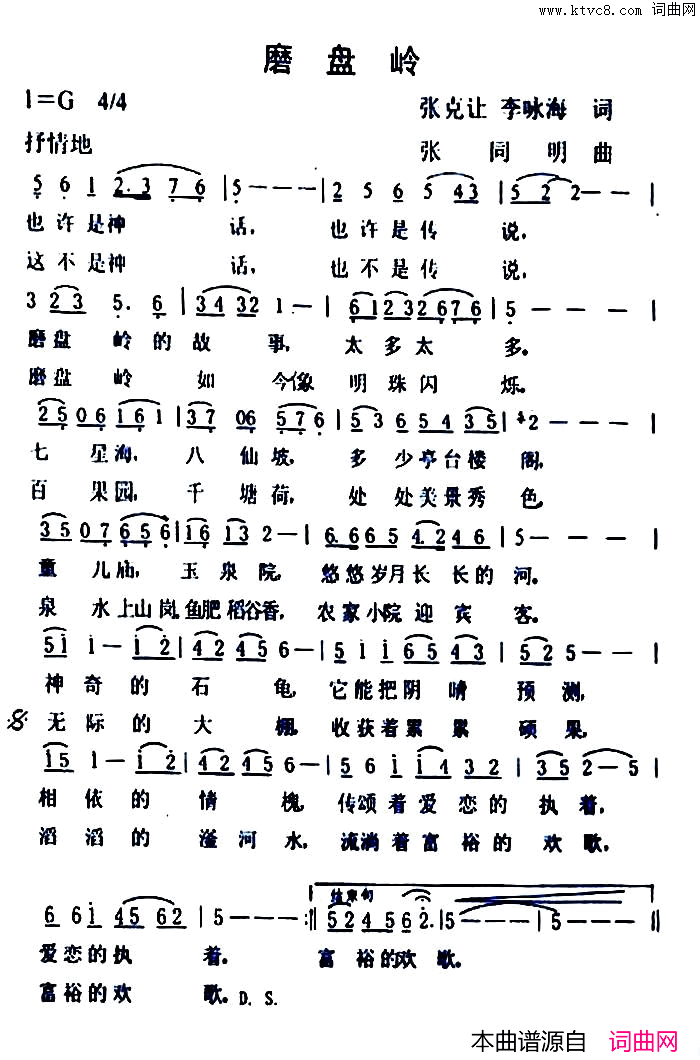 www.ktvc8.com 词曲网
磨盘岭
1=G 4/4
张克让 李咏海 词
抒情地
张同明 曲
5 6 1 2.3 7 6 | 5 - - - | 2 5 6 5 43 | 5 2 2 - - |
也许是神话, 也许是传说,
这不是神话, 也不是传说,
3 23 5. 6 | 34 32 1 - | 61 23 226 76 | 5 - - - |
磨盘岭的故事, 太多太多。
磨盘岭如今像明珠闪烁。
25 06 161 | 37 06 576 | 53 6 54 35 | 2 - - - |
七星海, 八仙坡, 多少亭台楼阁,
百果园, 千塘荷, 处处美景秀色,
35 07 656 | 16 13 2 - | 6.6 65 4.2 46 | 5 - - - |
童儿庙, 玉泉院, 悠悠岁月长长的河。
泉水上山岗,鱼肥稻谷香, 农家小院迎宾客。
51 1 - 12 | 42 45 6 - | 51 1 65 43 | 52 5 - - |
神奇的石龟, 它能把阴晴预测,
无际的大棚, 收获着累累硕果,
15 1 - 12 | 42 45 6 - | 56 1 43 12 | 35 2 - 5 |
相依的情槐, 传颂着爱恋的执着,
滔滔的滏河水, 流淌着富裕的欢歌,
结束句
6 6 1 45 62 | 5 - - - :|| 52 45 62. | 5 - - - | 5 - - - ||
爱恋的执着。 富裕的欢歌。
富裕的欢歌。D.S.
本曲谱源自 词曲网